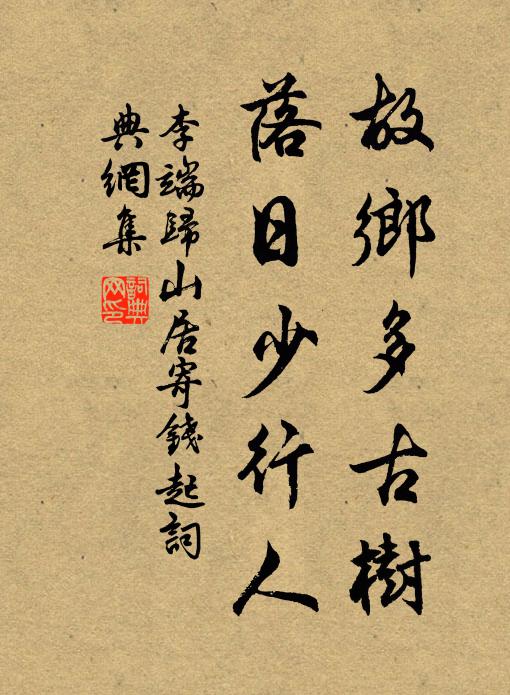 故鄉多古樹
落日少行人
李端歸山居寄錢起詞
典網集
詞典網印